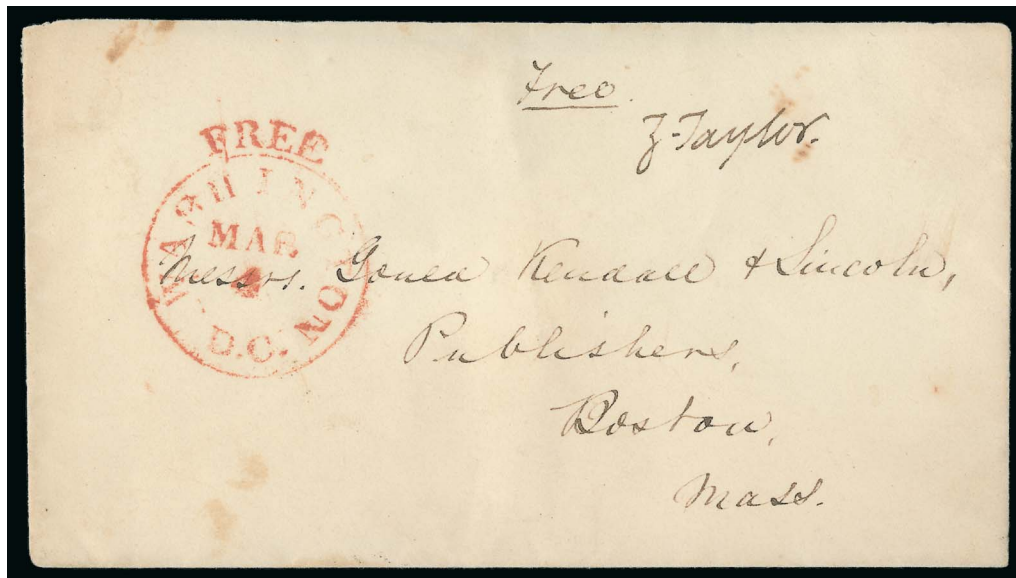 Free.
Z. Taylor.
FREE
WASHINGTON
MAR
D.C.
Messrs. Gould Kendall & Lincoln,
Publishers,
Boston,
Mass.